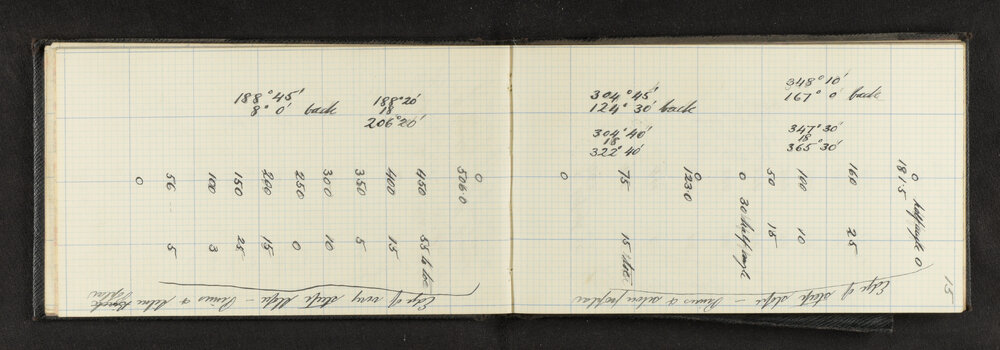 188° 45'
8° 0' back
188° 20'
18
206° 20'
0
526.0
450 55 to
400 15
350 5
300 10
250 0
200 15
150 25
100 3
56 5
0
Edge of very steep slope —
304° 45'
124° 30' back
304° 40'
18
322° 40'
348° 10'
167° 0' back
347° 30'
18
365° 30'
0
181.5
0 half angle 0
160 25
100 10
50 15
0 30 half angle
0
123.0
75 15
0
Edge of steep slope —
15